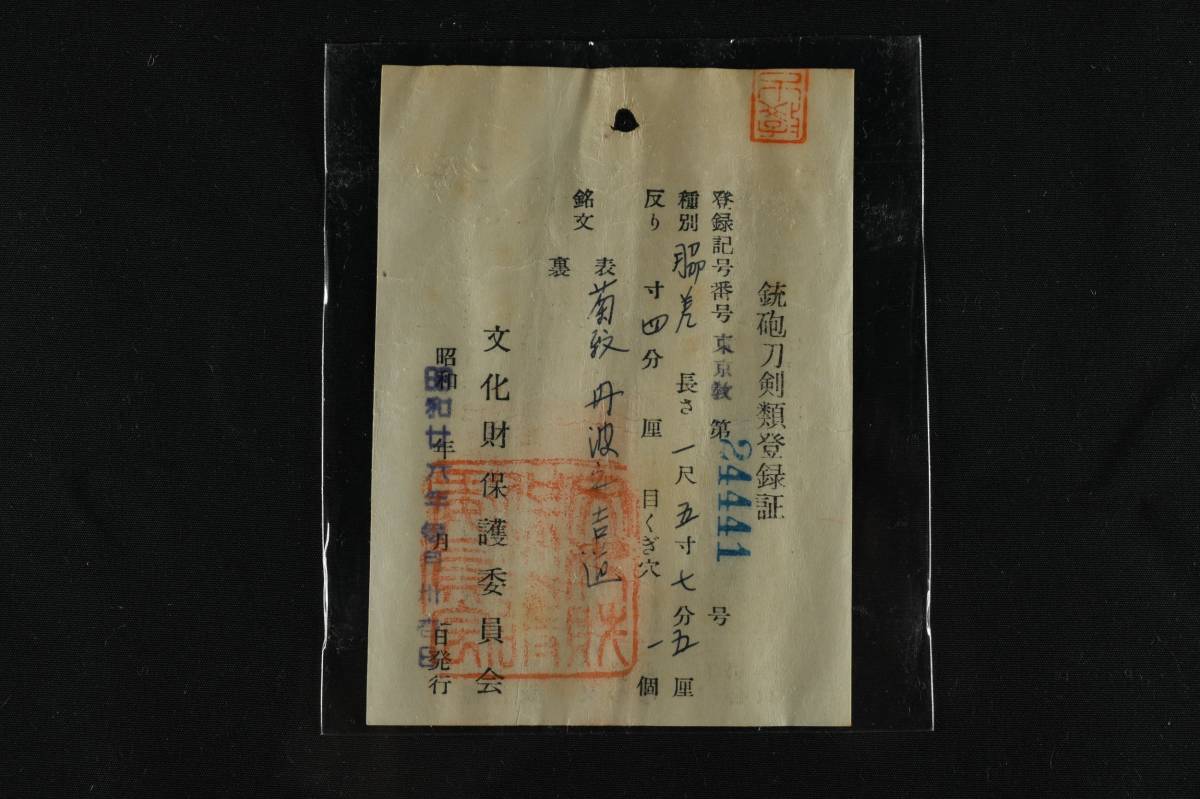 銃砲刀剣類登録証
登録記号番号 東京教 第 24441 号
種別 脇差 長さ 一尺五寸七分五厘
反り 寸四分 厘 目くぎ穴 一個
銘文 表 菊紋 丹波守吉道
裏
文化財保護委員会
昭和 年 月 日発行
昭和廿六年 月卅 日